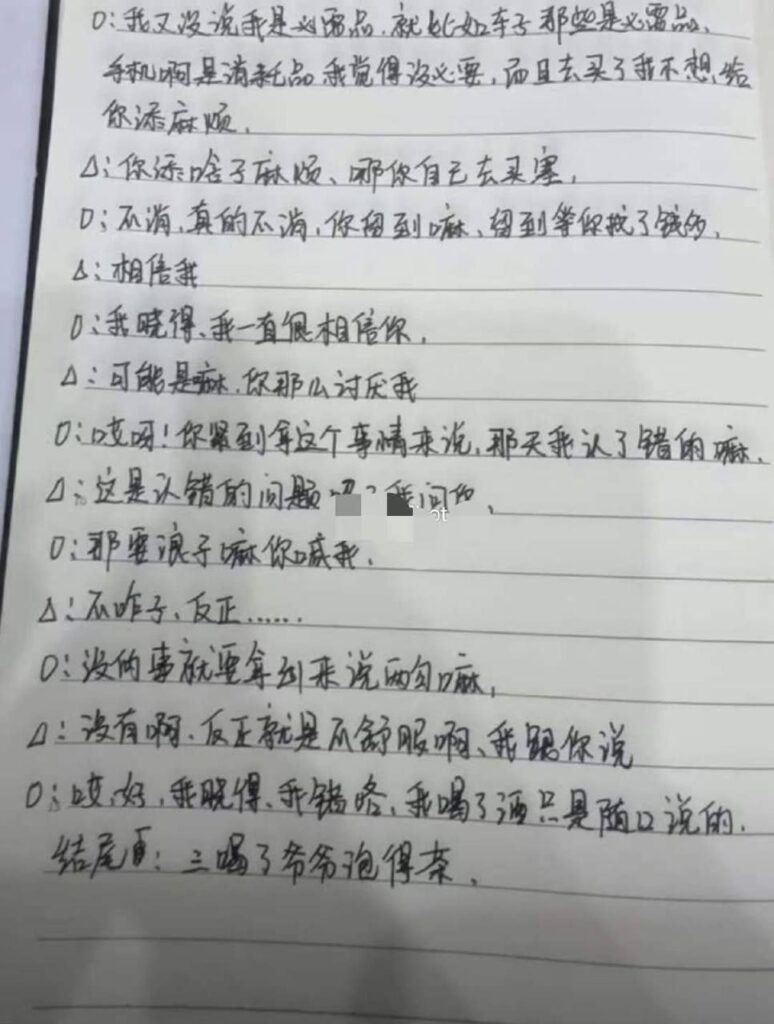 O:我又没说我是必需品,就比如车子那些是必需品、
手机啊是消耗品我觉得没必要,而且去买了我不想给
你添麻烦.
Δ:你添啥子麻烦、哪你自己去买塞,
O:不消,真的不消,你留到嘛、留到等你找了钱的,
Δ:相信我
O:我晓得、我一直很相信你,
Δ:可能是嘛.你那么讨厌我
O:哎呀!你紧到拿这个事情来说,那天我认了错的嘛.
Δ:这是认错的问题 我问你、
O:那要浪子嘛你喊我.
Δ:不咋子、反正......
O:没的事就要拿到来说两句嘛,
Δ:没有啊、反正就是不舒服啊、我跟你说
O:哎、好,我晓得、我错咯、我喝了酒只是随口说的.
结尾页:三喝了爷爷泡得茶、